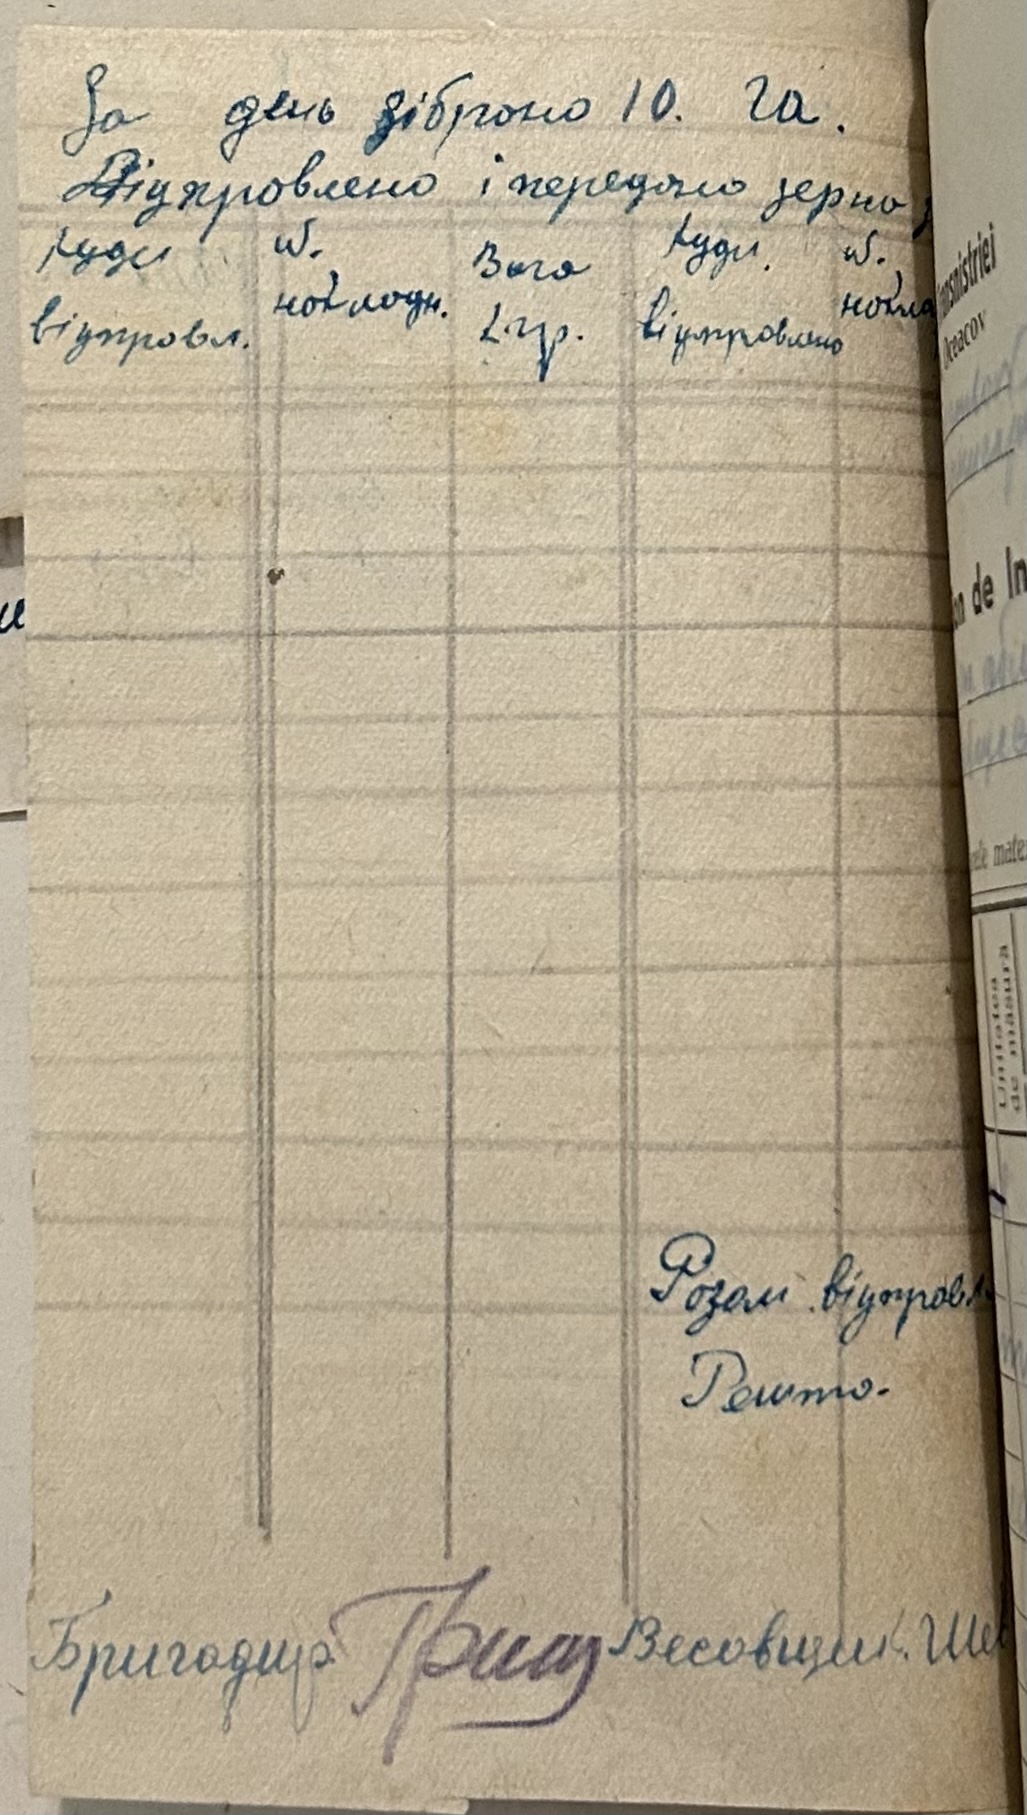 За день зібрано 10. га.
Відправлено і передано зерно
Куди
відправл.
№.
накладн.
Вага
кгр.
Куди.
відправлено
№.
накла
Разом відправл.
Решта.
Бригадир Весовщик.
Transnistriei
Oceacov
de In
mate
Unitatea
de măsură